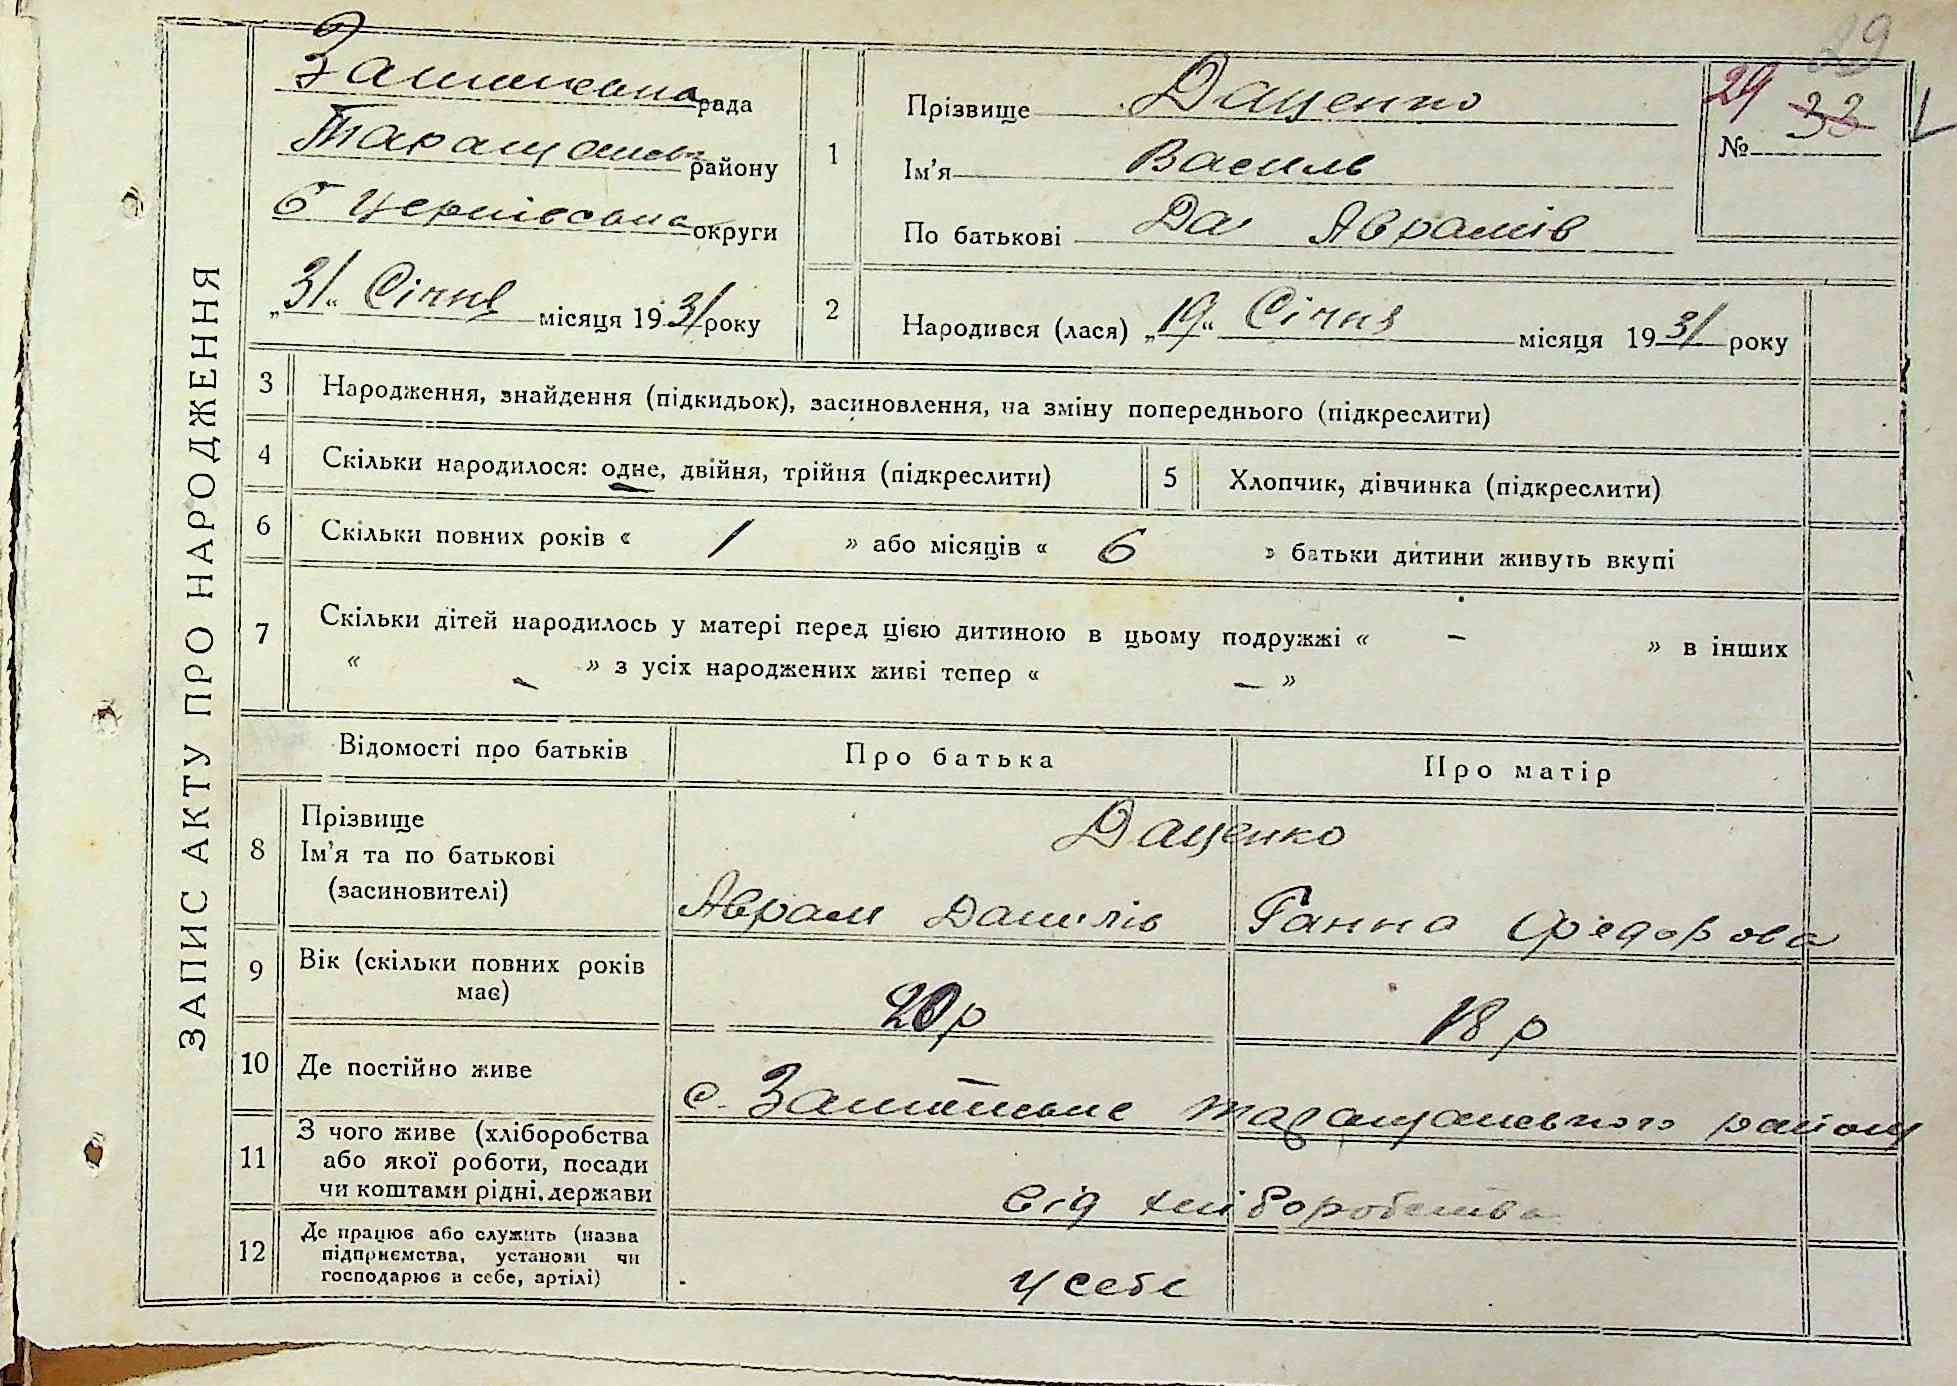 29
ЗАПИС АКТУ ПРО НАРОДЖЕННЯ
рада
району
округи
„31“ Січня місяця 1931 року
1
Прізвище Даценко
Ім'я Василь
По батькові Да Аврамів
29 33
№
2
Народився (лася) „19“ Січня місяця 1931 року
3 Народження, знайдення (підкидьок), засиновлення, на зміну попереднього (підкреслити)
4 Скільки народилося: одне, двійня, трійня (підкреслити)
5 Хлопчик, дівчинка (підкреслити)
6 Скільки повних років « 1 » або місяців « 6 » батьки дитини живуть вкупі
7 Скільки дітей народилось у матері перед цією дитиною в цьому подружжі « – » в інших
« – » з усіх народжених живі тепер « – »
Відомості про батьків Про батька Про матір
8 Прізвище
Ім'я та по батькові
(засиновителі)
Даценко
Аврам Данилів Ганна Федорова
9 Вік (скільки повних років
має)
20 р 18 р
10 Де постійно живе
с. район
11 З чого живе (хліборобства
або якої роботи, посади
чи коштами рідні, держави
від хліборобства
12 Де працює або служить (назва
підприємства, установи чи
господарює в себе, артілі)
у себе